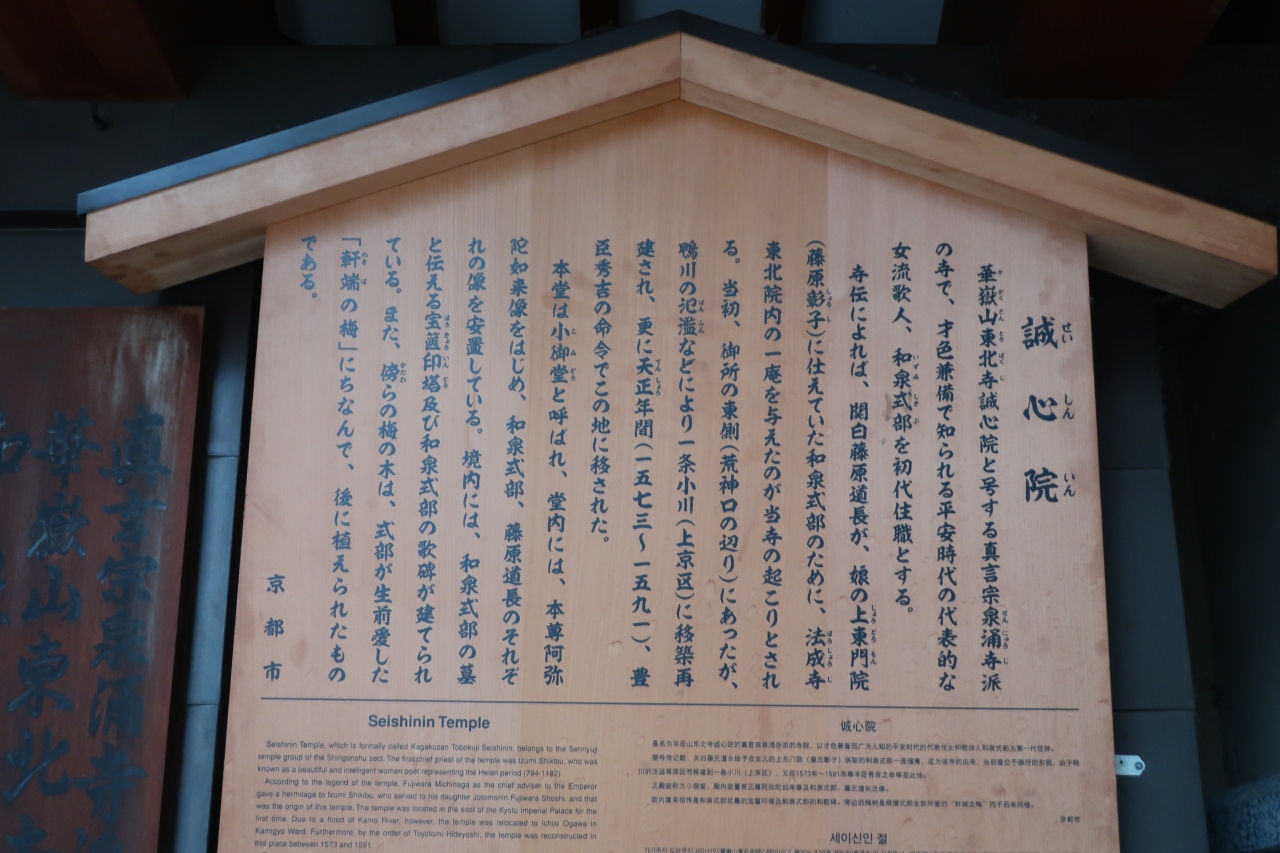 誠心院
華嶽山東北寺誠心院と号する真言宗泉涌寺派
の寺で、才色兼備で知られる平安時代の代表的な
女流歌人、和泉式部を初代住職とする。
寺伝によれば、関白藤原道長が、娘の上東門院
(藤原彰子)に仕えていた和泉式部のために、法成寺
東北院内の一庵を与えたのが当寺の起こりとされ
る。当初、御所の東側(荒神口の辺り)にあったが、
鴨川の氾濫などにより一条小川(上京区)に移築再
建され、更に天正年間(一五七三〜一五九一)、豊
臣秀吉の命令でこの地に移された。
本堂は小御堂と呼ばれ、堂内には、本尊阿弥
陀如来像をはじめ、和泉式部、藤原道長のそれぞ
れの像を安置している。境内には、和泉式部の墓
と伝える宝篋印塔及び和泉式部の歌碑が建てられ
ている。また、傍らの梅の木は、式部が生前愛した
「軒端の梅」にちなんで、後に植えられたもの
である。
京都市
Seishinin Temple
Seishinin Temple, which is formally called Kagakuzan Tobokuji Seishinin, belongs to the Sennyuji
temple group of the Shingonshu sect. The first chief priest of the temple was Izumi Shikibu, who was
known as a beautiful and intelligent woman poet representing the Heian period (794-1192).
According to the legend of the temple, Fujiwara Michinaga as the chief adviser to the Emperor
gave a hermitage to Izumi Shikibu, who served to his daughter Jotomonin Fujiwara Shoshi, and that
was the origin of this temple. The temple was located in the east of the Kyoto Imperial Palace for the
first time. Due to a flood of Kamo River, however, the temple was relocated to Ichijo Ogawa in
Kamigyo Ward. Furthermore, by the order of Toyotomi Hideyoshi, the temple was reconstructed in
this place between 1573 and 1591.
诚心院
京都市
세이신인 절
真言宗泉涌寺
華嶽山東北